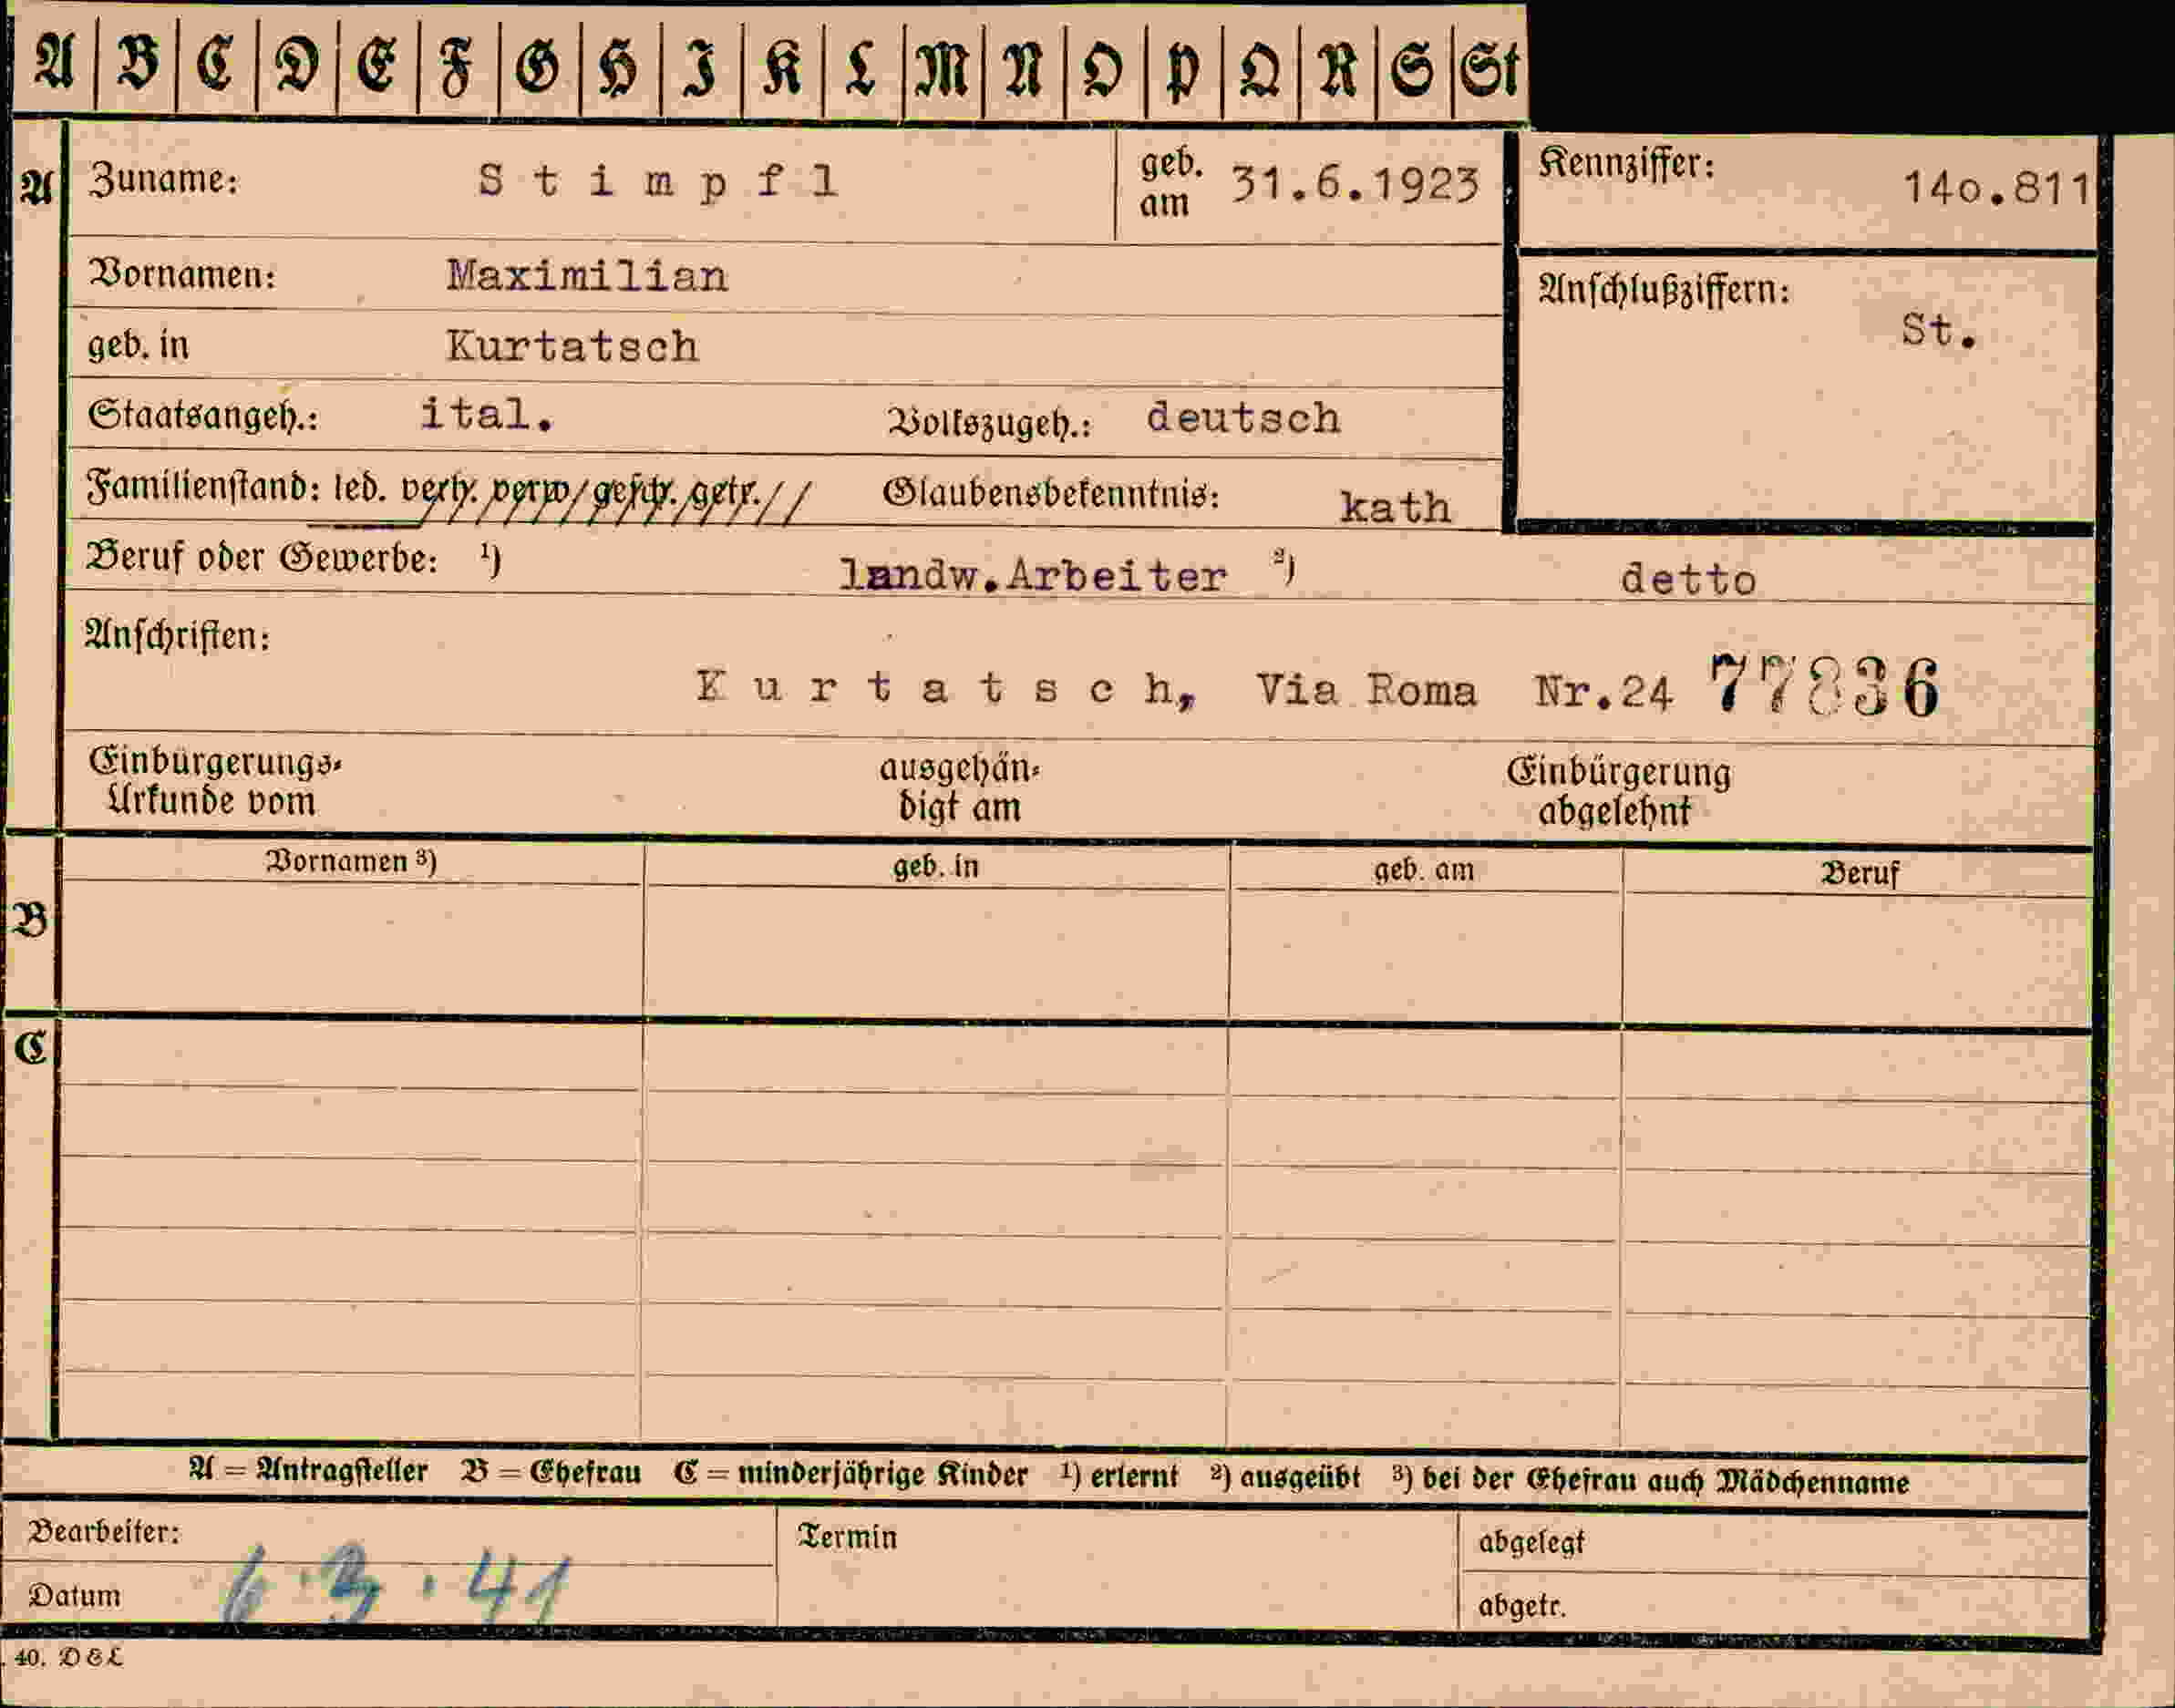 A B C D E F G H I K L M N O P Q R S St
A Zuname: Stimpfl geb. am 31.6.1923 Kennziffer: 14o.811
Vornamen: Maximilian Anschlußziffern: St.
geb. in Kurtatsch
Staatsangeh.: ital. Volkszugeh.: deutsch
Familienstand: led. verh. verw. gesch. getr. Glaubensbekenntnis: kath
Beruf oder Gewerbe: ¹) landw.Arbeiter ²) detto
Anschriften:
Kurtatsch, Via Roma Nr.24 77836
Einbürgerungs- ausgehän- Einbürgerung
Urkunde vom digt am abgelehnt
Vornamen ³) geb. in geb. am Beruf
B
C
A = Antragsteller B = Ehefrau C = minderjährige Kinder ¹) erlernt ²) ausgeübt ³) bei der Ehefrau auch Mädchenname
Bearbeiter: Termin abgelegt
Datum 6.3.41 abgetr.
40. D&L